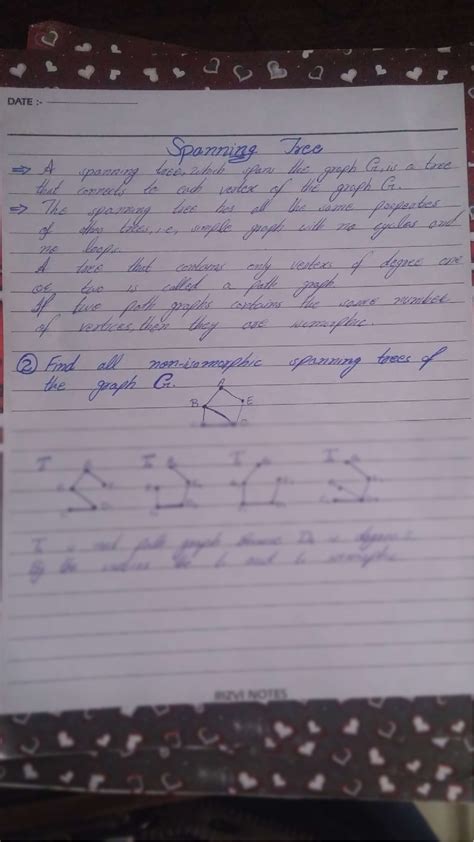 DATE :-
Spanning Tree
⇒ A spanning tree, which spans the graph G, is a tree
that connects to each vertex of the graph G.
⇒ The spanning tree has all the same properties
of other trees, i.e, simple graph with no cycles and
no loops.
A tree that contains only vertexs of degree one
or two is called a path graph.
If two path graphs contains the same number
of vertices, then they are isomorphic.
② Find all non-isomorphic spanning trees of
the graph G.
A
B E
is not path graph
RIZVI NOTES